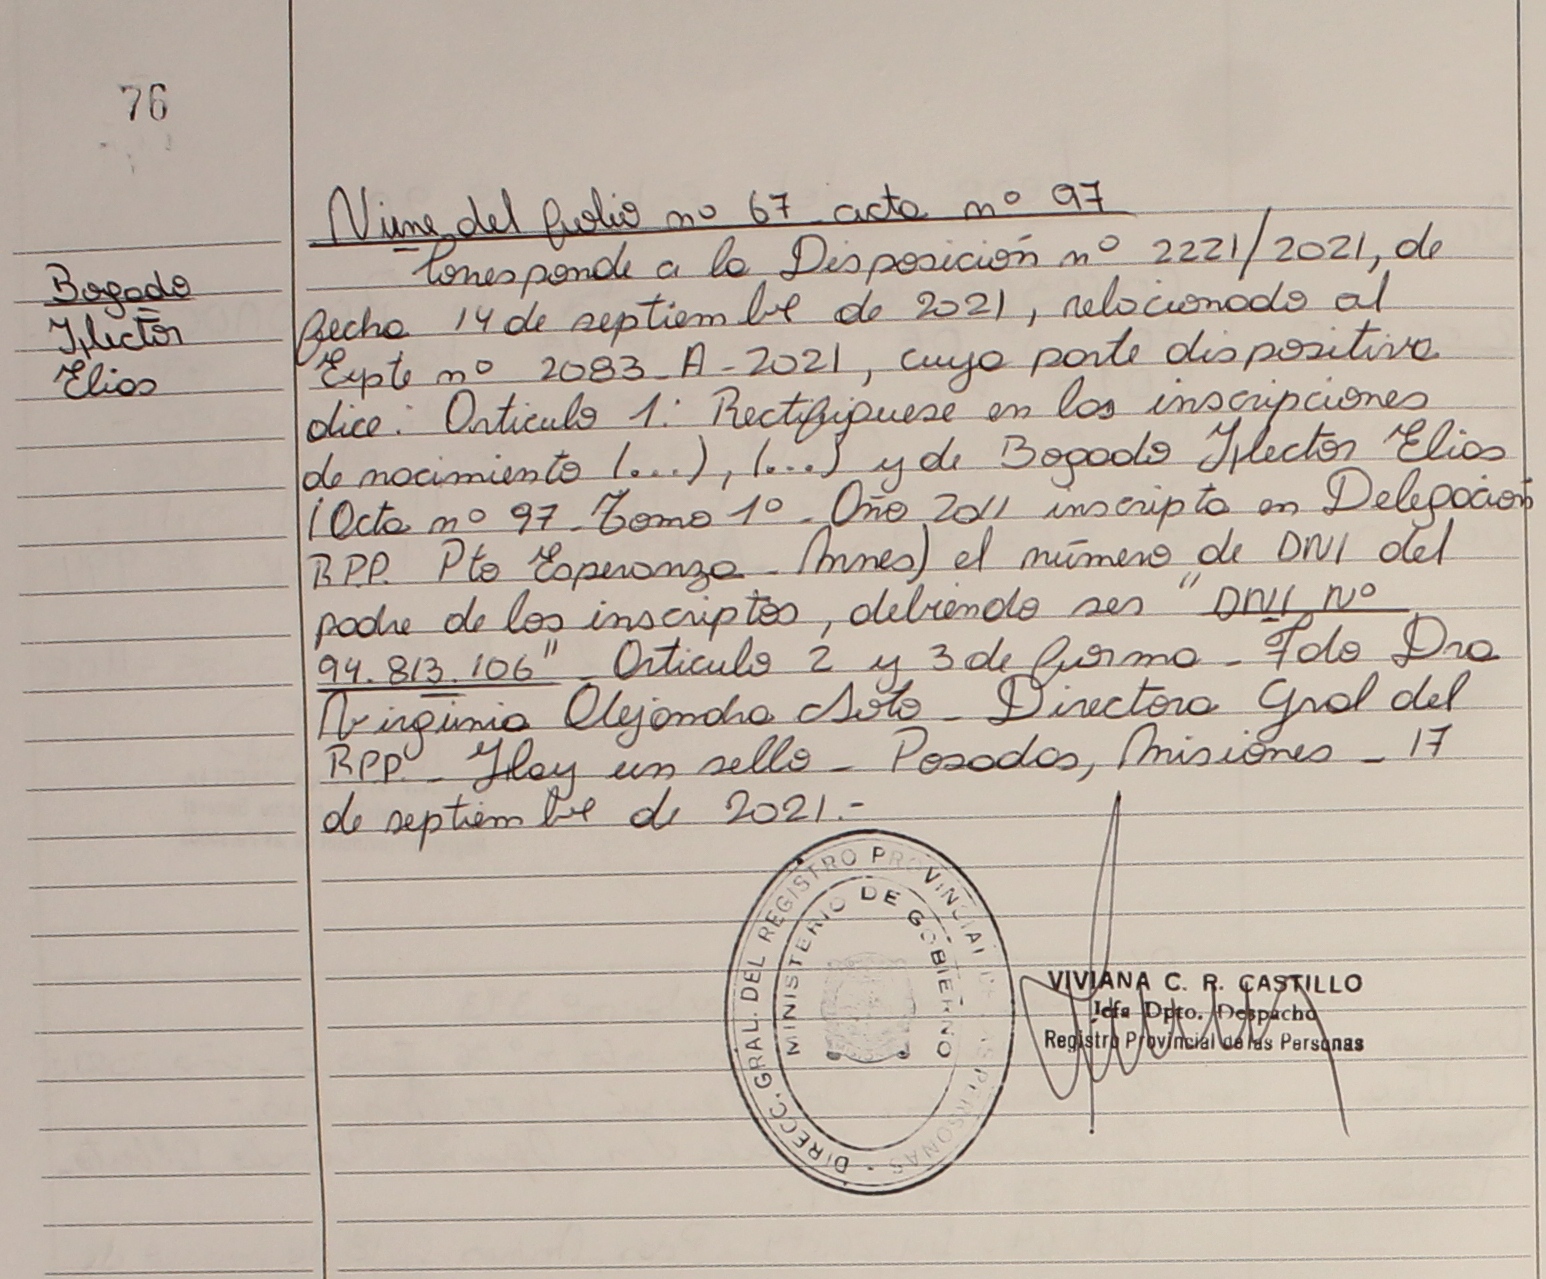 76
Viene del folio nº 67 acta nº 97
Bogado
Hector
Elias
Corresponde a la Disposición nº 2221/2021, de
fecha 14 de septiembre de 2021, relacionado al
Expte nº 2083-A-2021, cuya parte dispositiva
dice: Articulo 1: Rectifiquese en las inscripciones
de nacimiento (...), (...) y de Bogado Hector Elias
(Acta nº 97-Tomo 1º-Año 2011 inscripta en Delegación
RPP. Pto Esperanza-Mnes) el número de DNI del
padre de los inscriptos, debiendo ser "DNI Nº
94.813.106"-Articulo 2 y 3 de forma-Fdo Dra
Virginia Alejandra Soto-Directora Gral del
RPP.-Hay un sello-Posadas, Misiones-17
de septiembre de 2021.-
DIRECC. GRAL. DEL REGISTRO PROVINCIAL DE LAS PERSONAS
MINISTERIO DE GOBIERNO
VIVIANA C. R. CASTILLO
Jefa Dpto. Despacho
Registro Provincial de las Personas